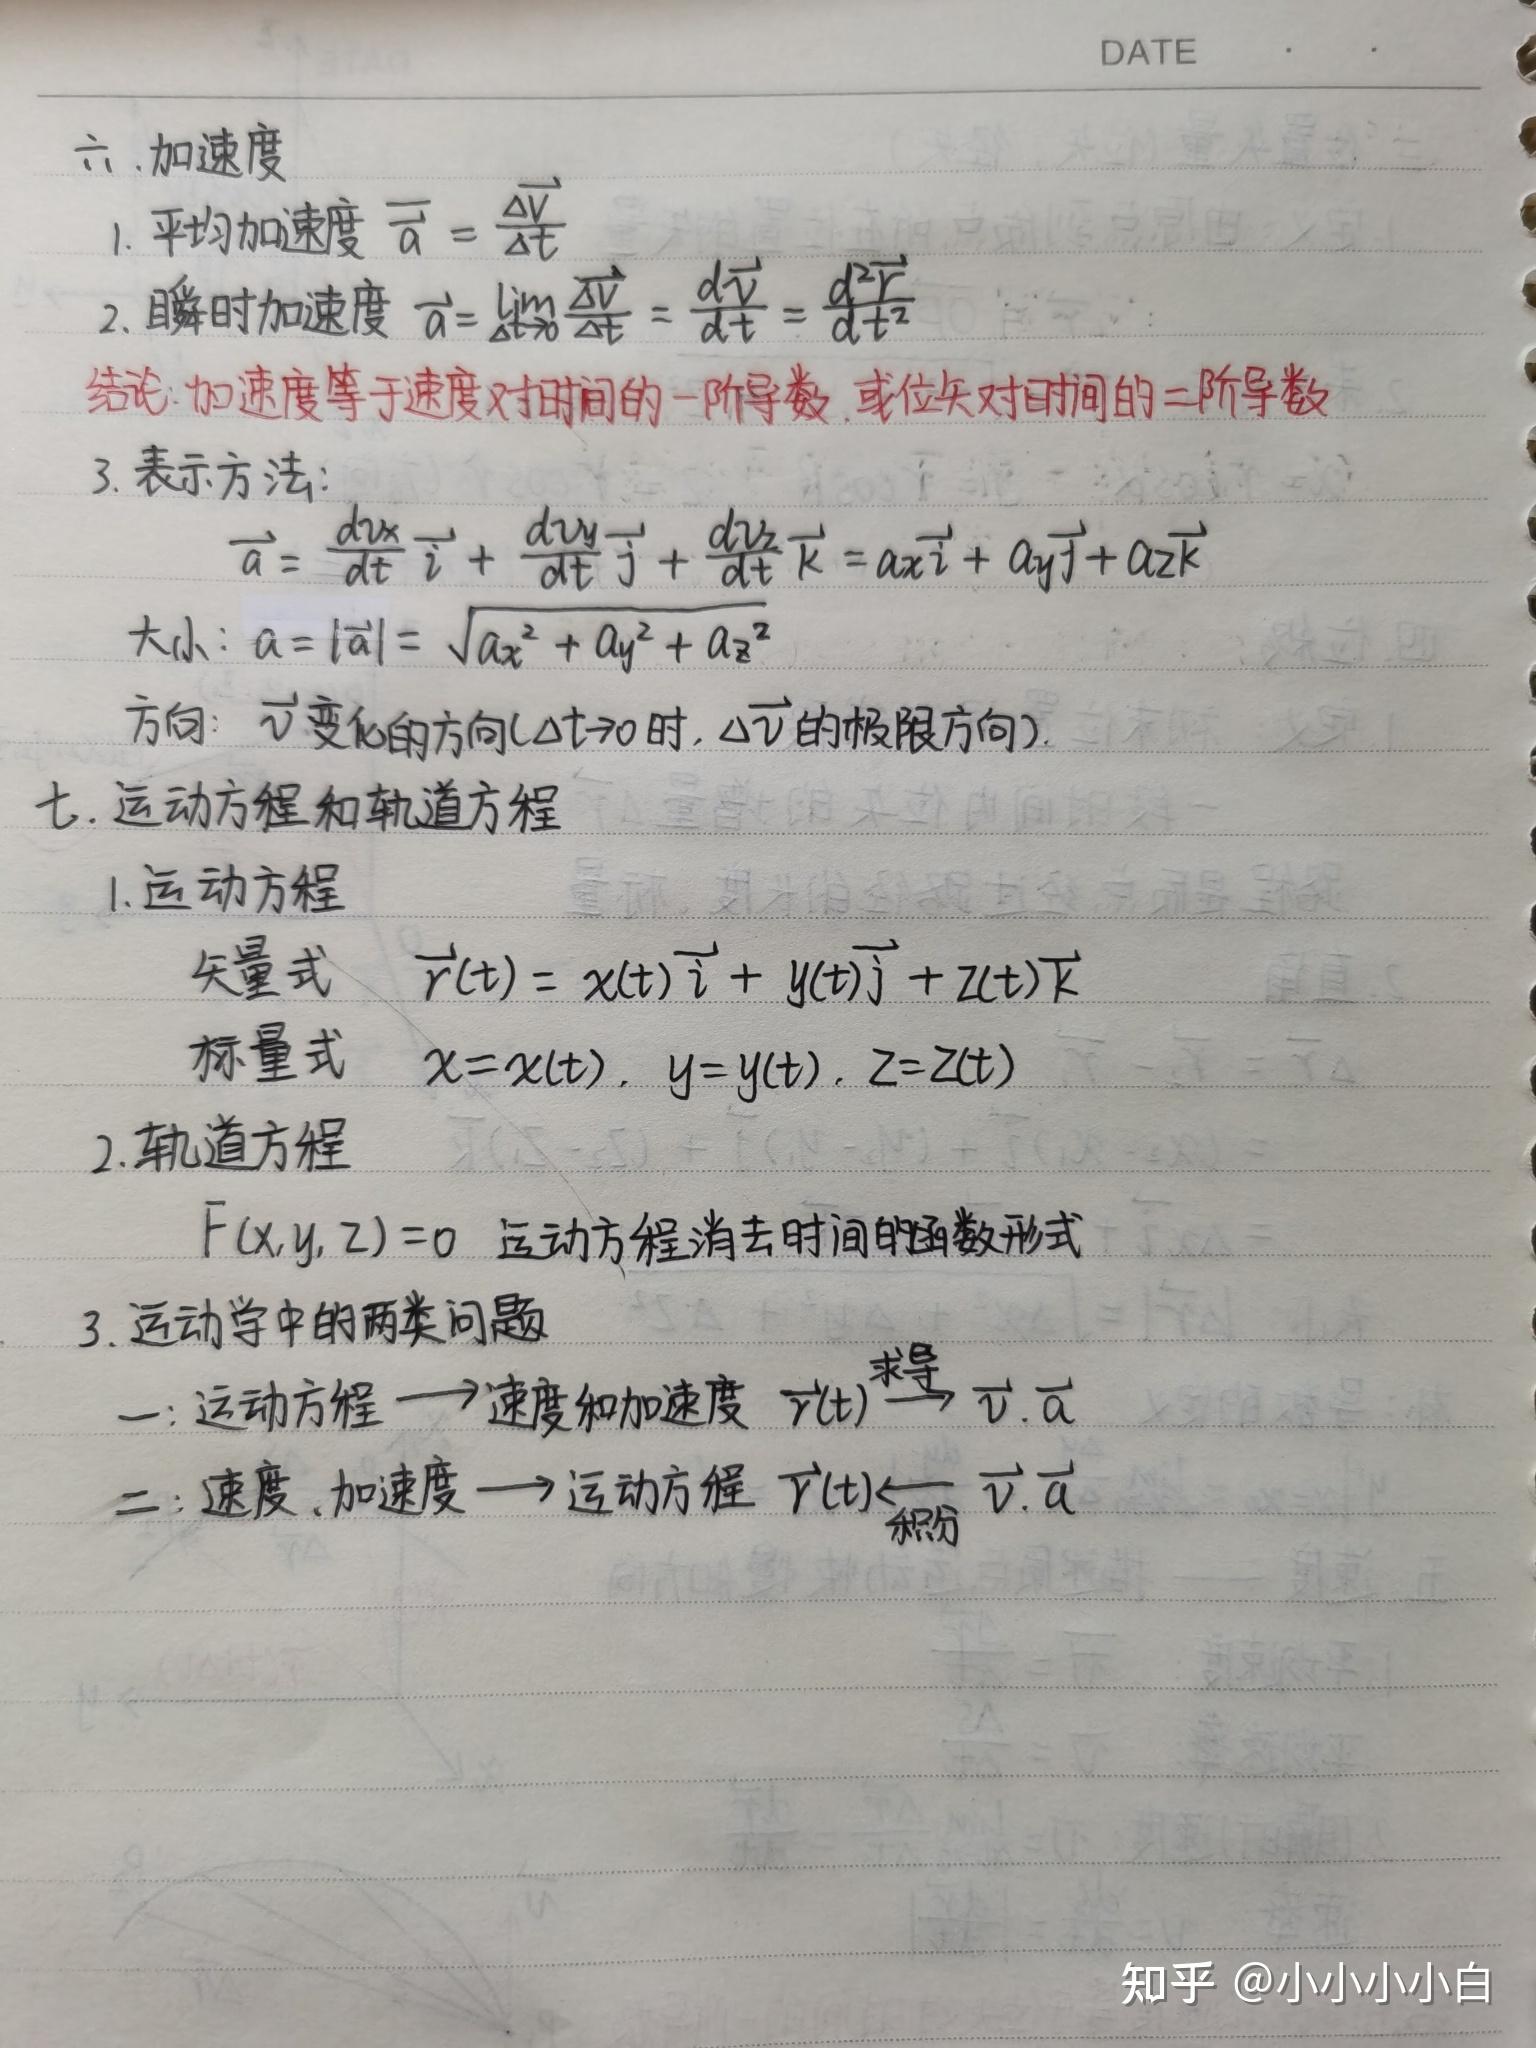 DATE · ·
六.加速度
1. 平均加速度 $\overline{\vec{a}} = \frac{\Delta \vec{V}}{\Delta t}$
2. 瞬时加速度 $\vec{a} = \lim_{\Delta t \to 0} \frac{\Delta \vec{V}}{\Delta t} = \frac{d\vec{v}}{dt} = \frac{d^2\vec{r}}{dt^2}$
结论:加速度等于速度对时间的一阶导数.或位矢对时间的二阶导数
3. 表示方法:
$\vec{a} = \frac{dv_x}{dt}\vec{i} + \frac{dv_y}{dt}\vec{j} + \frac{dv_z}{dt}\vec{k} = a_x\vec{i} + a_y\vec{j} + a_z\vec{k}$
大小: $a = |\vec{a}| = \sqrt{a_x^2 + a_y^2 + a_z^2}$
方向: $\vec{v}$ 变化的方向(Δt→0时, $\Delta\vec{v}$ 的极限方向).
七.运动方程和轨道方程
1.运动方程
矢量式 $\vec{r}(t) = x(t)\vec{i} + y(t)\vec{j} + z(t)\vec{k}$
标量式 x=x(t). y=y(t). z=z(t)
2.轨道方程
F(x,y,z)=0 运动方程消去时间的函数形式
3.运动学中的两类问题
一:运动方程→速度和加速度 $\vec{r}(t) \xrightarrow{求导} \vec{v}.\vec{a}$
二:速度、加速度→运动方程 $\vec{r}(t) \xleftarrow[积分]{} \vec{v}.\vec{a}$
知乎 @小小小小白